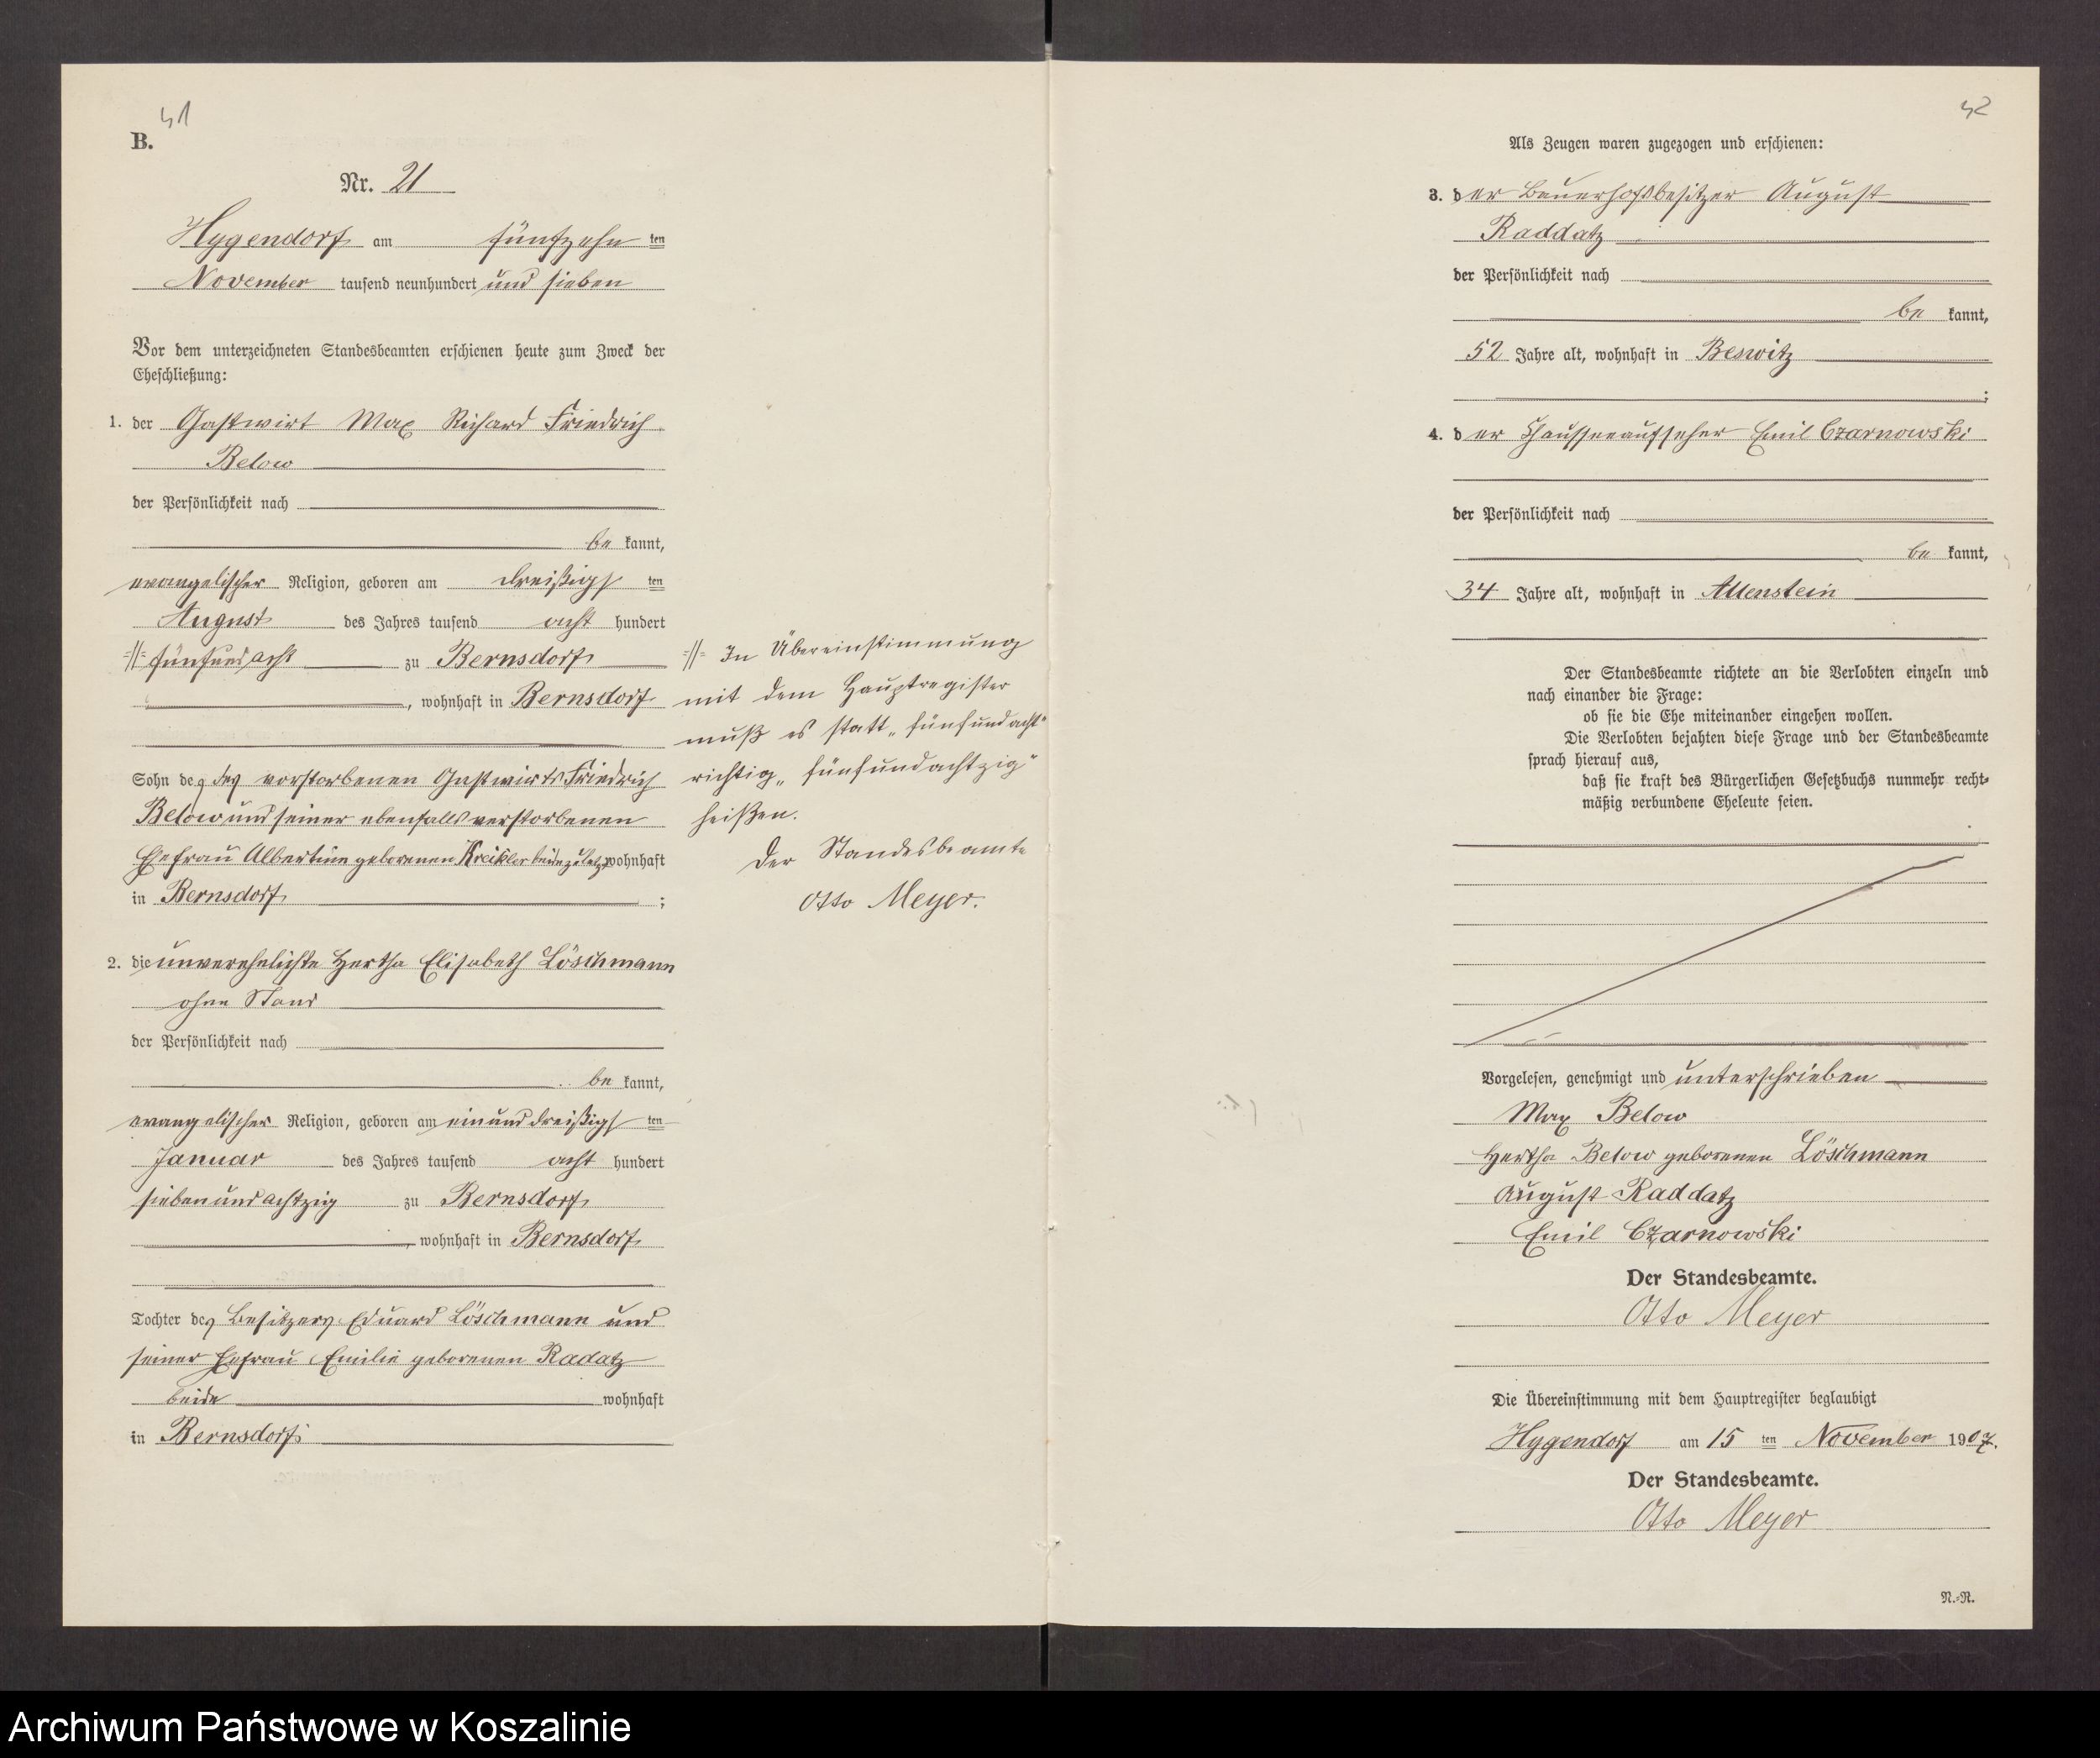 41
B.
Nr. 21
Hygendorf am fünfzehn ten
November tausend neunhundert und sieben
Vor dem unterzeichneten Standesbeamten erschienen heute zum Zweck der
Eheschließung:
1. der Gastwirt Max Richard Friedrich
Below
der Persönlichkeit nach
be kannt,
evangelischer Religion, geboren am dreißigs ten
August des Jahres tausend acht hundert
fünfundacht zu Bernsdorf
, wohnhaft in Bernsdorf
Sohn des des verstorbenen Gastwirts Friedrich
Below und seiner ebenfalls verstorbenen
Ehefrau Albertine geborenen Kreikler beide zuletzt wohnhaft
in Bernsdorf ;
2. die unverehelichte Hertha Elisabeth Löschmann
ohne Stand
der Persönlichkeit nach
be kannt,
evangelischer Religion, geboren am einunddreißigs ten
Januar des Jahres tausend acht hundert
siebenundachtzig zu Bernsdorf
, wohnhaft in Bernsdorf
Tochter des Besitzers Eduard Löschmann und
seiner Ehefrau Emilie geborenen Radatz
beide wohnhaft
in Bernsdorf
In Übereinstimmung
mit dem Hauptregister
muß es statt „fünfundacht"
richtig „fünfundachtzig"
heißen.
Der Standesbeamte
Otto Meyer.
42
Als Zeugen waren zugezogen und erschienen:
3. der Bauerhofsbesitzer August
Raddatz
der Persönlichkeit nach
be kannt,
52 Jahre alt, wohnhaft in Beswitz
;
4. der Chausseeaufseher Emil Czarnowski
der Persönlichkeit nach
be kannt,
34 Jahre alt, wohnhaft in Altenstein
Der Standesbeamte richtete an die Verlobten einzeln und
nach einander die Frage:
ob sie die Ehe miteinander eingehen wollen.
Die Verlobten bejahten diese Frage und der Standesbeamte
sprach hierauf aus,
daß sie kraft des Bürgerlichen Gesetzbuchs nunmehr recht-
mäßig verbundene Eheleute seien.
Vorgelesen, genehmigt und unterschrieben
Max Below
Hertha Below geborenen Löschmann
August Raddatz
Emil Czarnowski
Der Standesbeamte.
Otto Meyer
Die Übereinstimmung mit dem Hauptregister beglaubigt
Hygendorf am 15 ten November 1907.
Der Standesbeamte.
Otto Meyer
N.-R.
Archiwum Państwowe w Koszalinie